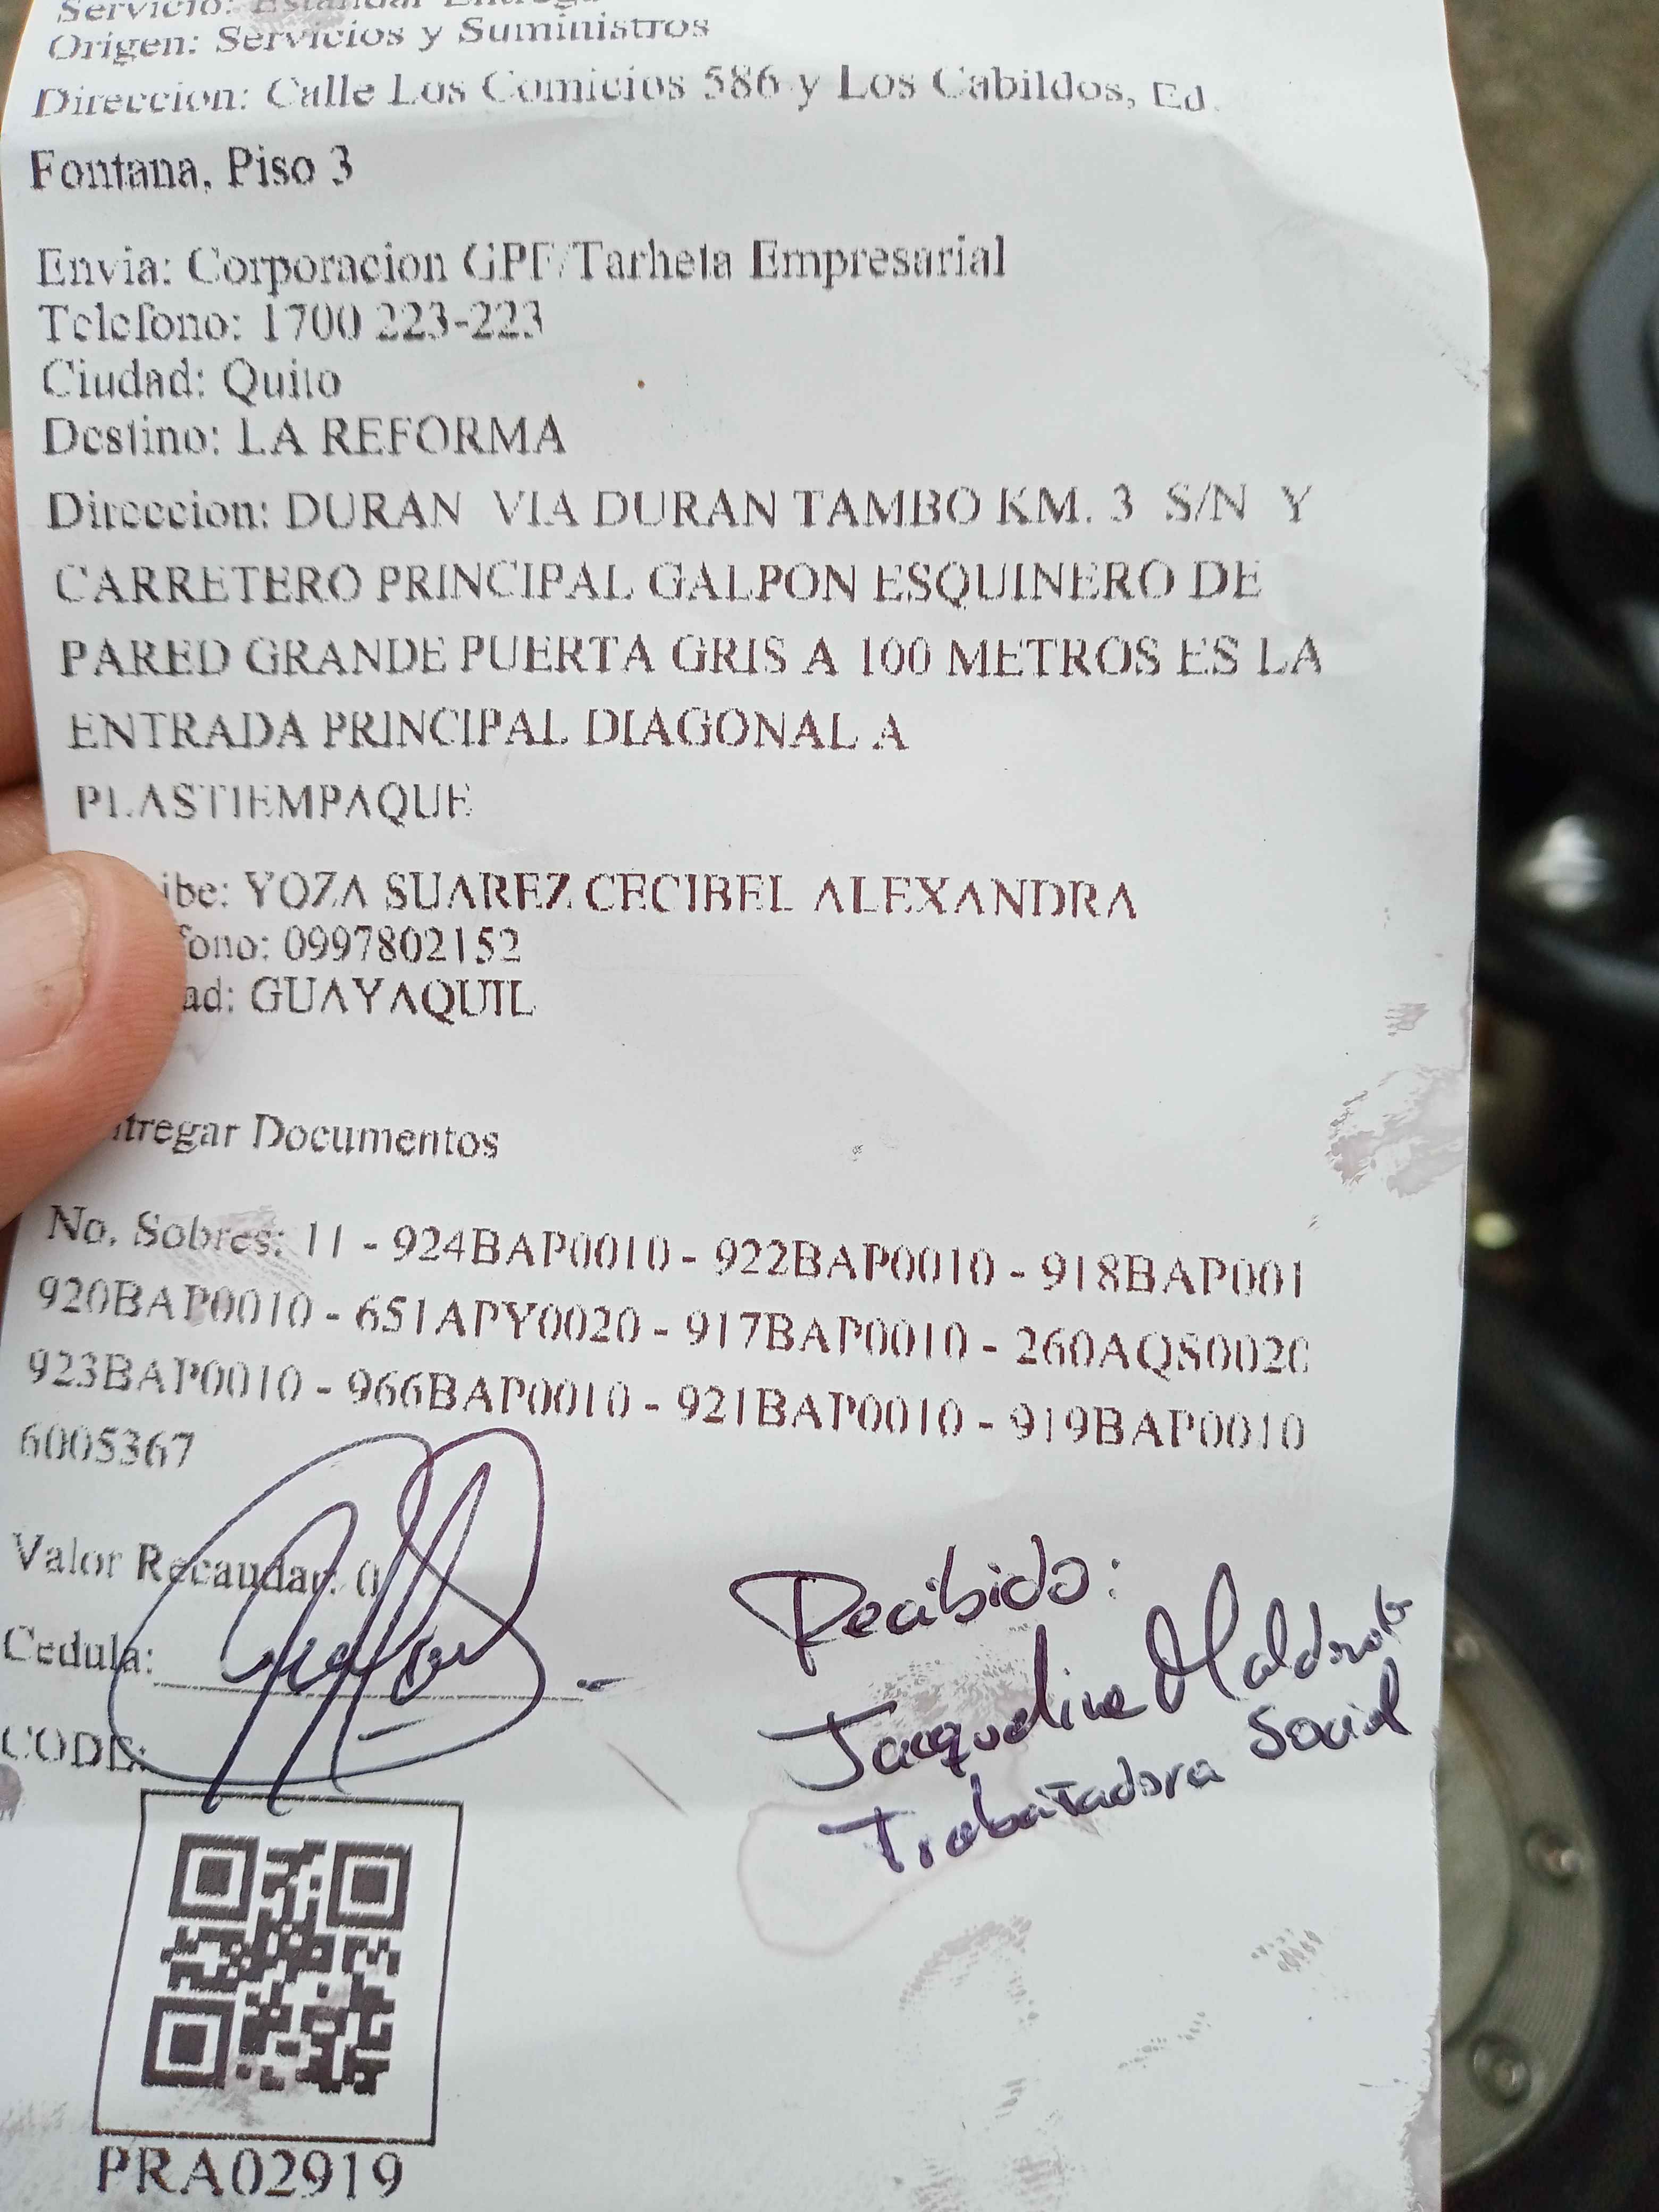 Servicio: Estandar Entrega
Origen: Servicios y Suministros
Direccion: Calle Los Comicios 586 y Los Cabildos, Ed.
Fontana, Piso 3
Envia: Corporacion GPF/Tarheta Empresarial
Telefono: 1700 223-223
Ciudad: Quito
Destino: LA REFORMA
Direccion: DURAN VIA DURAN TAMBO KM. 3 S/N Y
CARRETERO PRINCIPAL GALPON ESQUINERO DE
PARED GRANDE PUERTA GRIS A 100 METROS ES LA
ENTRADA PRINCIPAL DIAGONAL A
PLASTIEMPAQUE
ibe: YOZA SUAREZ CECIBEL ALEXANDRA
fono: 0997802152
ad: GUAYAQUIL
ntregar Documentos
No. Sobres: 11 - 924BAP0010 - 922BAP0010 - 918BAP001
920BAP0010 - 651APY0020 - 917BAP0010 - 260AQS002
923BAP0010 - 966BAP0010 - 921BAP0010 - 919BAP0010
6005367
Valor Recaudar: 0
Cedula:
CODE:
Recibido:
Jacqueline Maldonado
Trabajadora Social
PRA02919